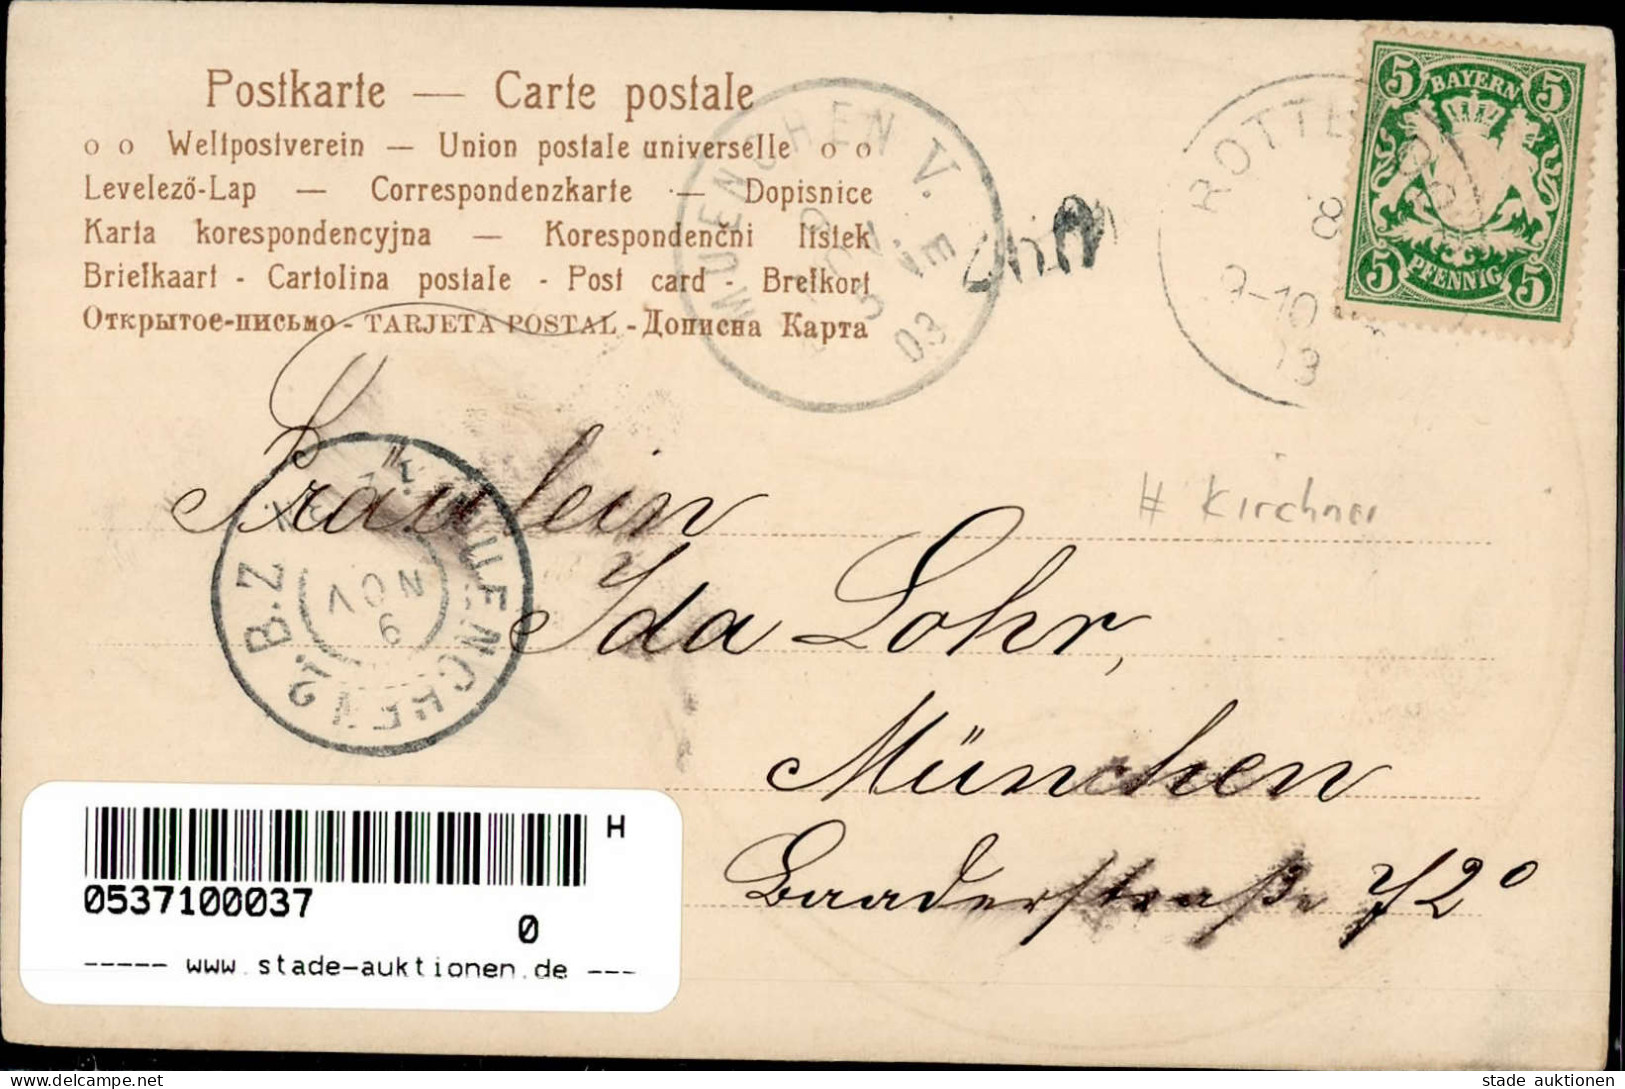 Postkarte — Carte postale
o o Weltpostverein — Union postale universelle o o
Levelező-Lap — Correspondenzkarte — Dopisnice
Karta korespondencyjna — Korespondenčni listek
Briefkaart - Cartolina postale - Post card - Brefkort
Открытое-письмо - TARJETA POSTAL - Дописна Карта
MUENCHEN V.
03
8
9-10
5 BAYERN 5
5 PFENNIG 5
# Kirchner
Fräulein
Ida Lohr,
München
Baaderstraße
MUENCHEN 2 B.Z
9
NOV
H
0537100037
0
----- www.stade-auktionen.de ---
stade auktionen